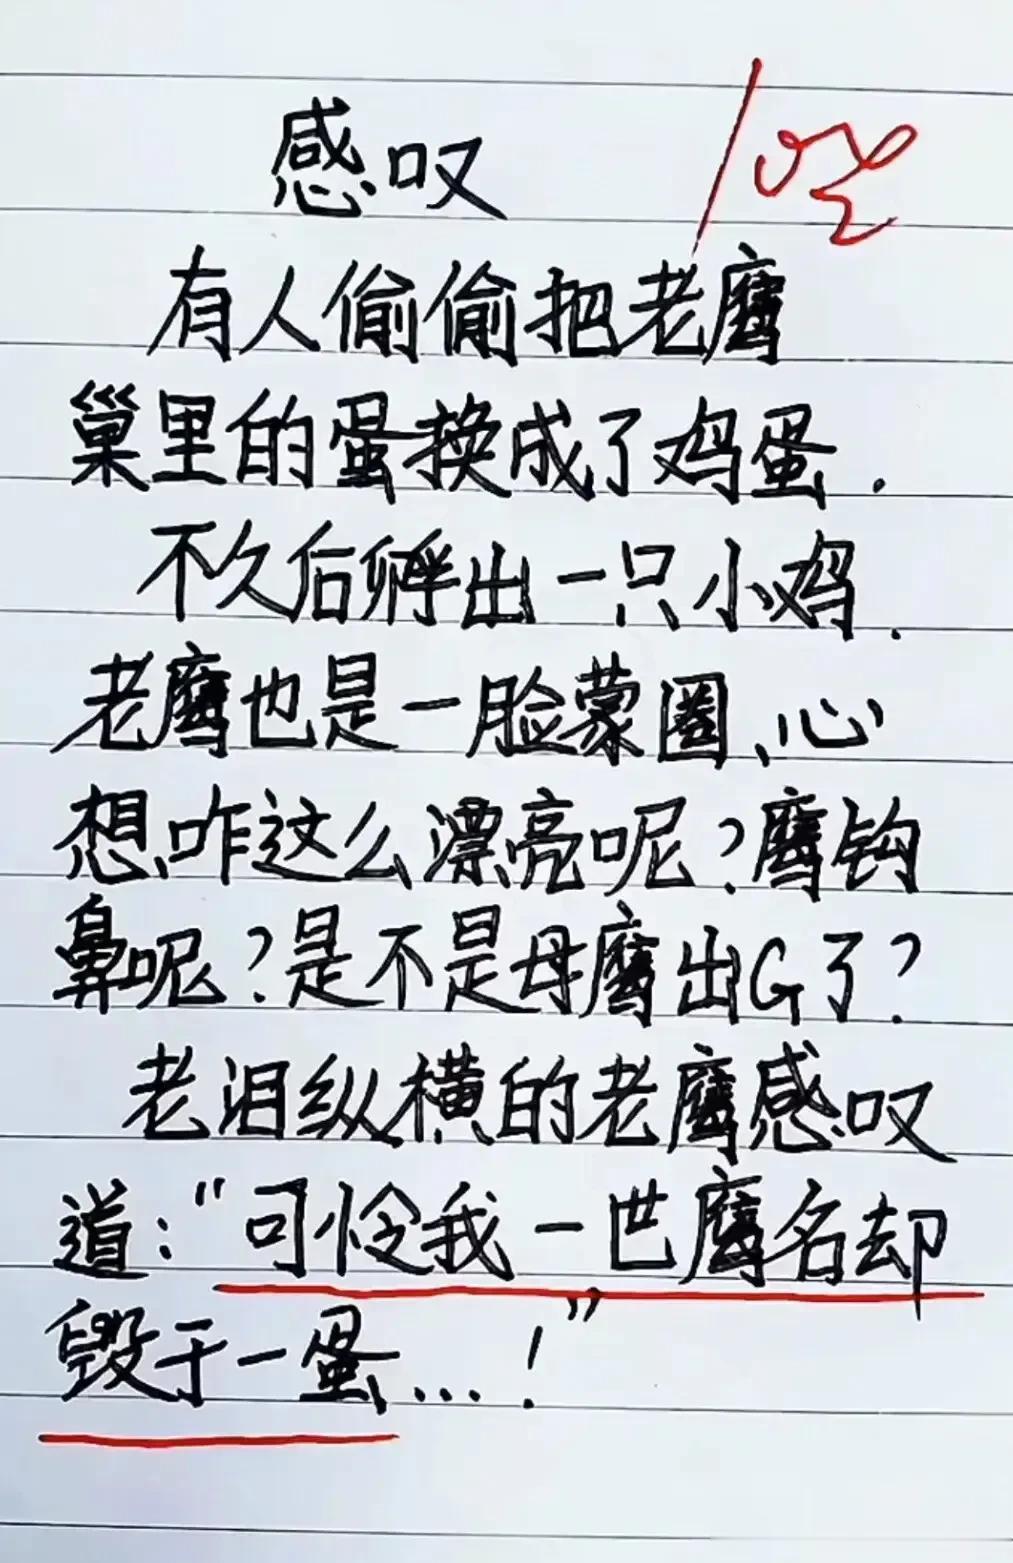 感叹
有人偷偷把老鹰
巢里的蛋换成了鸡蛋.
不久后孵出一只小鸡.
老鹰也是一脸蒙圈、心
想咋这么漂亮呢?鹰钩
鼻呢?是不是母鹰出G了?
老泪纵横的老鹰感叹
道:“可怜我一世鹰名却
毁于一蛋...!”